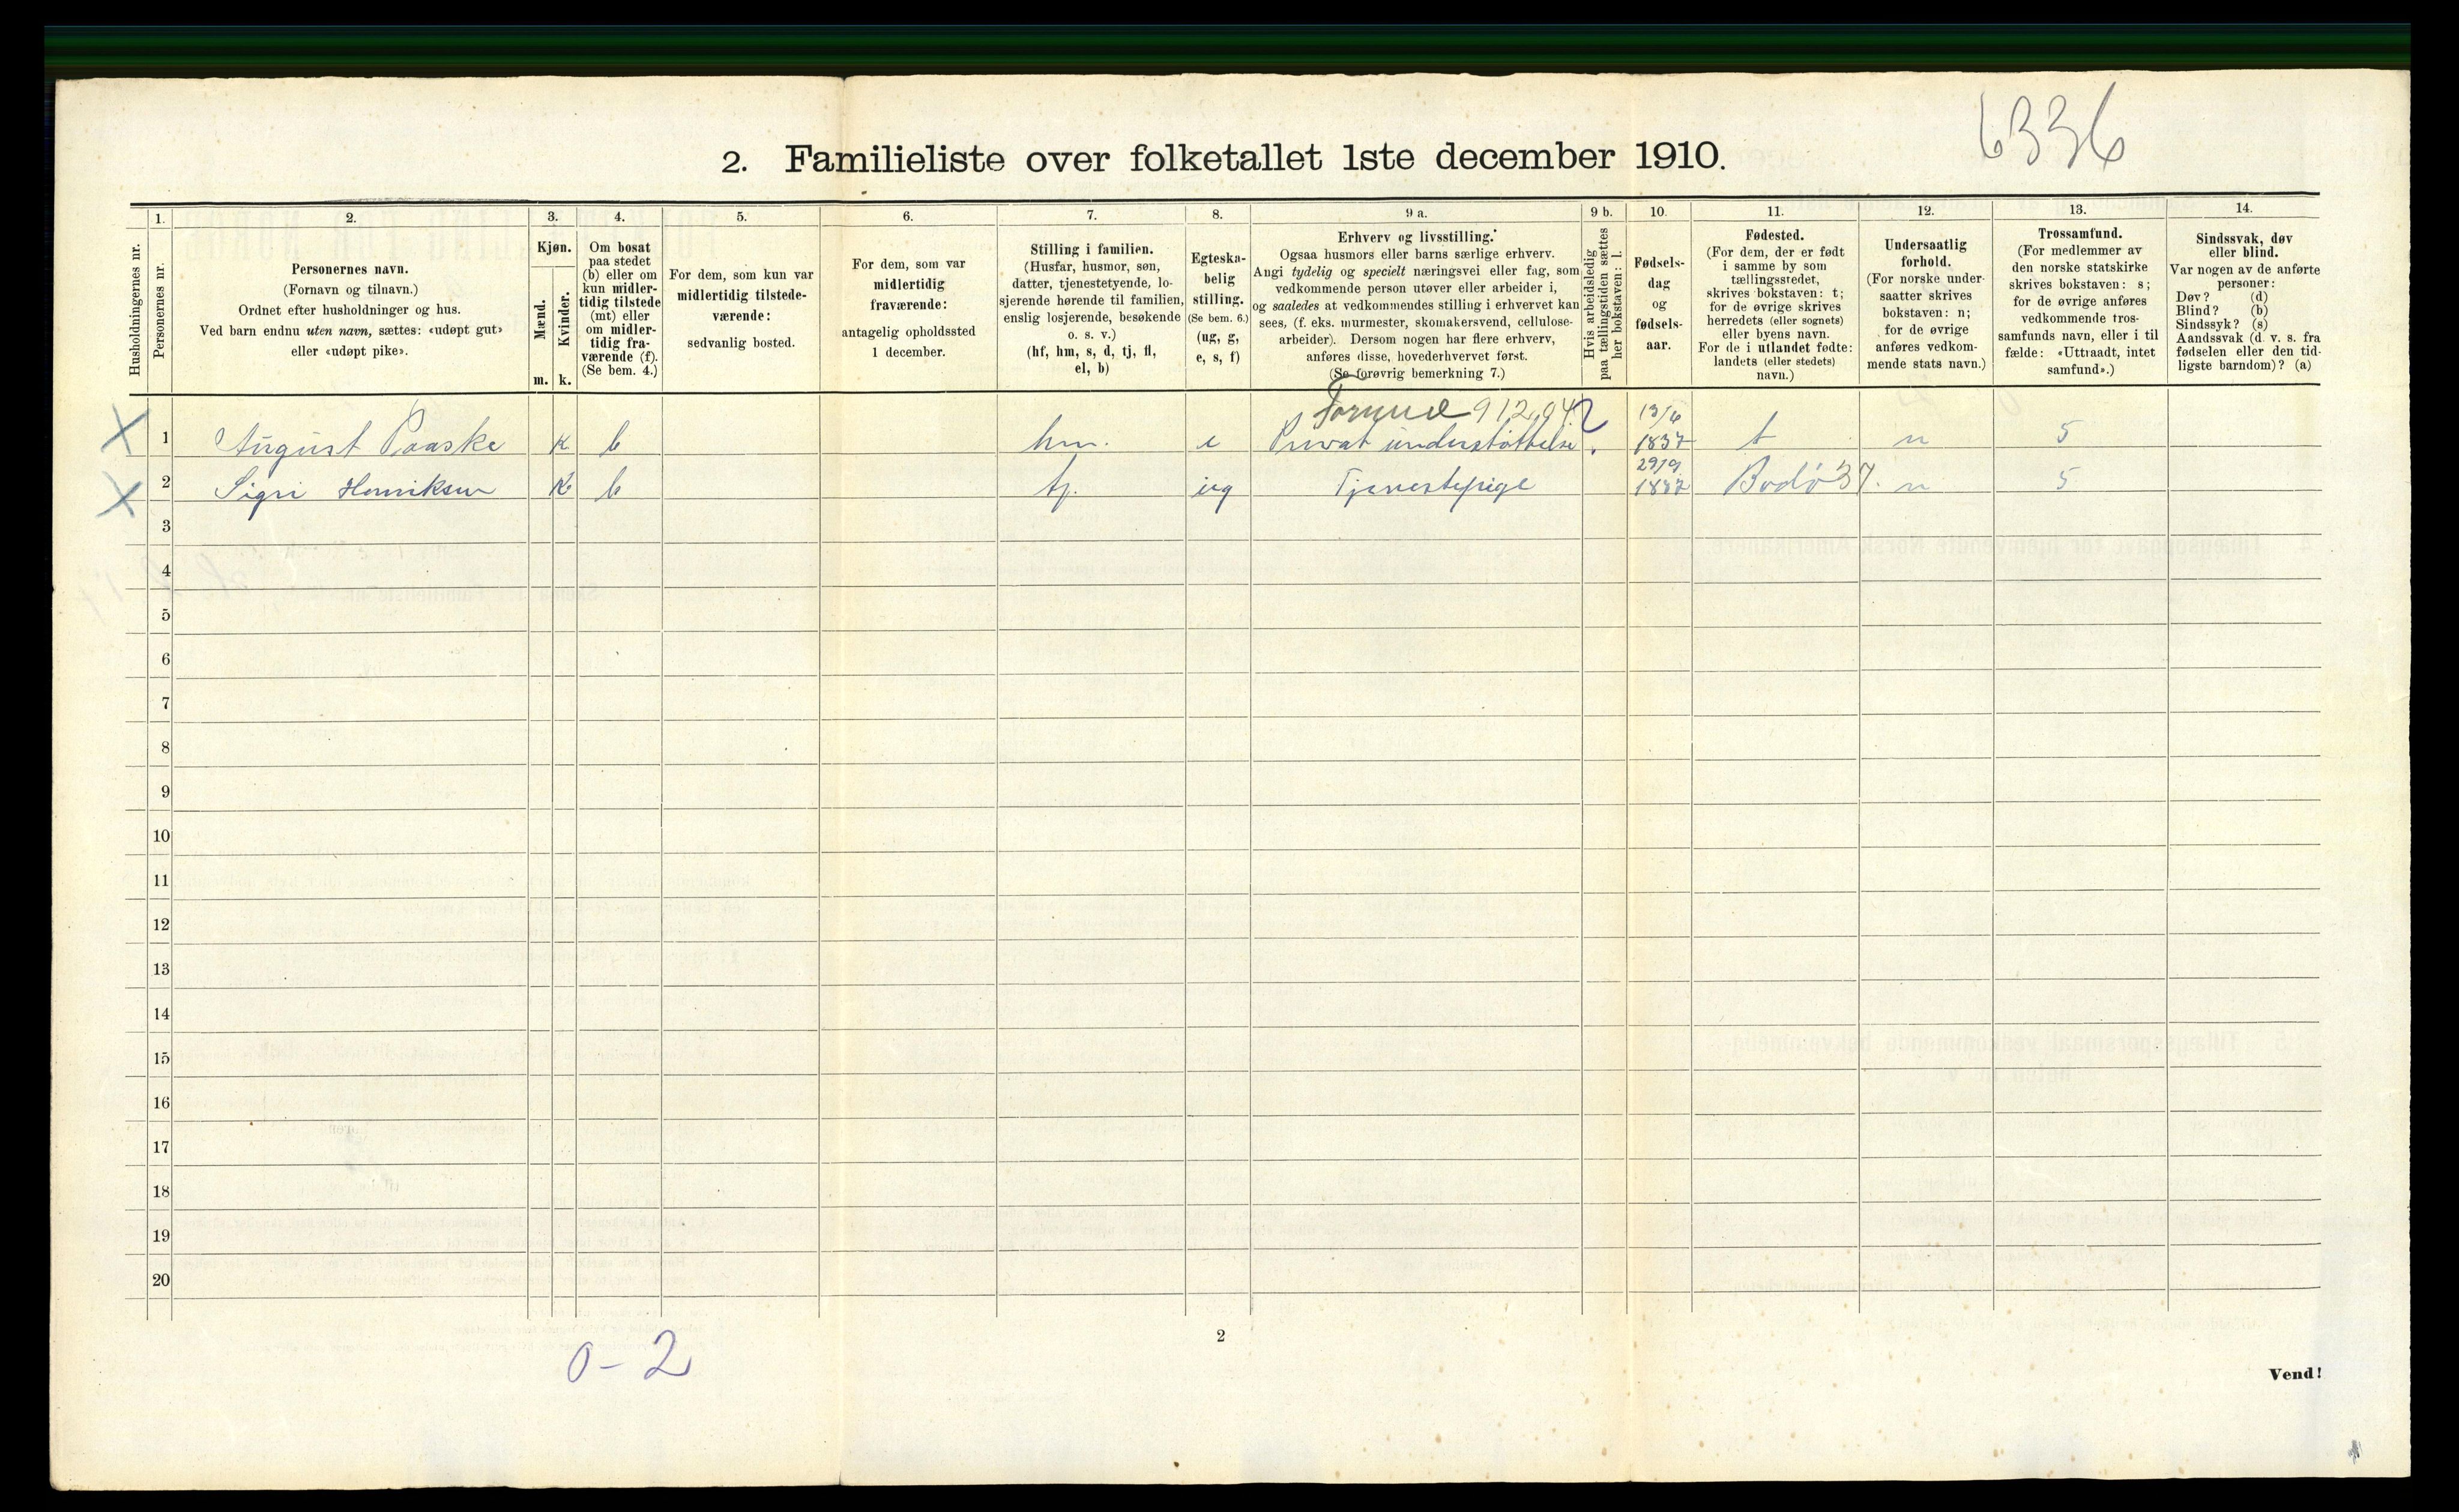 6336
2. Familieliste over folketallet 1ste december 1910.
1. 2. 3. 4. 5. 6. 7. 8. 9 a. 9 b. 10. 11. 12. 13. 14.
Husholdningernes nr.
Personernes nr.
Personernes navn.
(Fornavn og tilnavn.)
Ordnet efter husholdninger og hus.
Ved barn endnu uten navn, sættes: «udøpt gut»
eller «udøpt pike».
Kjøn.
Mænd.
Kvinder.
m. k.
Om bosat
paa stedet
(b) eller om
kun midler-
tidig tilstede
(mt) eller
om midler-
tidig fra-
værende (f).
(Se bem. 4.)
For dem, som kun var
midlertidig tilstede-
værende:
sedvanlig bosted.
For dem, som var
midlertidig
fraværende:
antagelig opholdssted
1 december.
Stilling i familien.
(Husfar, husmor, søn,
datter, tjenestetyende, lo-
sjerende hørende til familien,
enslig losjerende, besøkende
o. s. v.)
(hf, hm, s, d, tj, fl,
el, b)
Egteska-
belig
stilling.
(Se bem. 6.)
(ug, g,
e, s, f)
Erhverv og livsstilling.
Ogsaa husmors eller barns særlige erhverv.
Angi tydelig og specielt næringsvei eller fag, som
vedkommende person utøver eller arbeider i,
og saaledes at vedkommendes stilling i erhvervet kan
sees, (f. eks. murmester, skomakersvend, cellulose-
arbeider). Dersom nogen har flere erhverv,
anføres disse, hovederhvervet først.
(Se forøvrig bemerkning 7.)
Hvis arbeidsledig
paa tællingstiden sættes
her bokstaven: l.
Fødsels-
dag
og
fødsels-
aar.
Fødested.
(For dem, der er født
i samme by som
tællingsstedet,
skrives bokstaven: t;
for de øvrige skrives
herredets (eller sognets)
eller byens navn.
For de i utlandet fødte:
landets (eller stedets)
navn.)
Undersaatlig
forhold.
(For norske under-
saatter skrives
bokstaven: n;
for de øvrige
anføres vedkom-
mende stats navn.)
Trossamfund.
(For medlemmer av
den norske statskirke
skrives bokstaven: s;
for de øvrige anføres
vedkommende tros-
samfunds navn, eller i til
fælde: «Uttraadt, intet
samfund».)
Sindssvak, døv
eller blind.
Var nogen av de anførte
personer:
Døv? (d)
Blind? (b)
Sindssyk? (s)
Aandssvak (d. v. s. fra
fødselen eller den tid-
ligste barndom)? (a)
Formue 912,04 13/6
X 1 August Paaske K b hm. e Privat understøttelse 1837 t n s
29/9
X 2 Sigri Henriksen K b tj. ug Tjenestepige Bodø 37. n s
3
4
5
6
7
8
9
10
11
12
13
14
15
16
17
18
19
20
2
0-2
Vend!